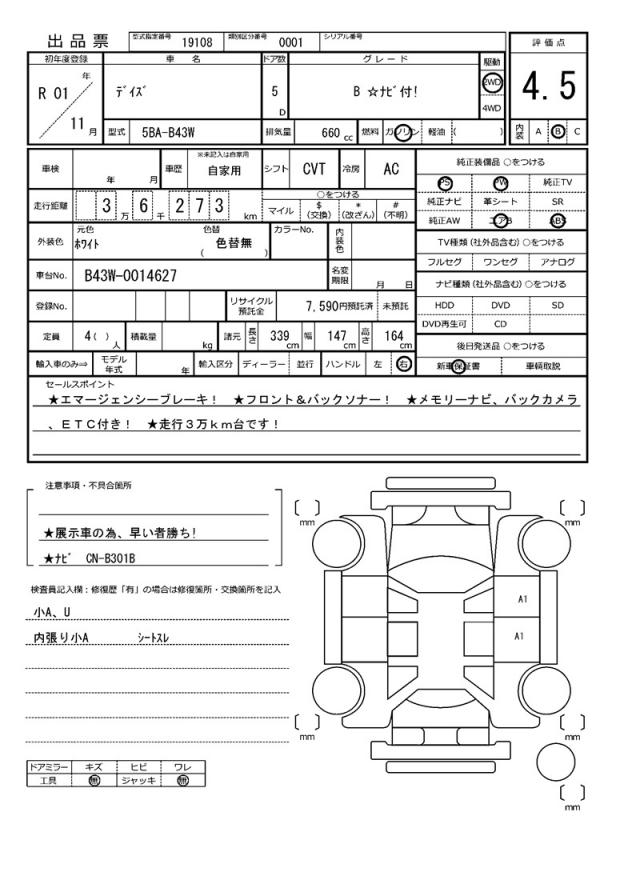 出品票 型式指定番号 19108 類別区分番号 0001 シリアル番号
評価点
4.5
内装 A B C
初年度登録 車名 ドア数 グレード 駆動
R 01 年 11 月
ﾃﾞｲｽﾞ 5 D B ☆ﾅﾋﾞ付! 2WD 4WD
型式 5BA-B43W 排気量 660 cc 燃料 ガソリン 軽油 ( )
車検 年 月 車歴 ※未記入は自家用 自家用 シフト CVT 冷房 AC
走行距離 3 万 6 千 2 7 3 km
○をつける
マイル $(交換) *(改ざん) #(不明)
外装色 元色 ﾎﾜｲﾄ 色替 色替無 ( ) カラーNo. 内装色
車台No. B43W-0014627 名変期限 月 日
登録No. リサイクル預託金 7,590円預託済 未預託
定員 4( )人 積載量 kg 諸元 長さ 339 cm 幅 147 cm 高さ 164 cm
輸入車のみ⇒ モデル年式 年 輸入区分 ディーラー 並行 ハンドル 左 右
純正装備品 ○をつける
PS PW 純正TV
純正ナビ 革シート SR
純正AW エアB ABS
TV種類(社外品含む)○をつける
フルセグ ワンセグ アナログ
ナビ種類(社外品含む)○をつける
HDD DVD SD
DVD再生可 CD
後日発送品 ○をつける
新車保証書 車輌取説
セールスポイント
★エマージェンシーブレーキ! ★フロント&バックソナー! ★メモリーナビ、バックカメラ
、ETC付き! ★走行3万km台です!
注意事項・不具合箇所
★展示車の為、早い者勝ち!
★ﾅﾋﾞ CN-B301B
検査員記入欄:修復歴「有」の場合は修復箇所・交換箇所を記入
小A、U
内張り小A ｼｰﾄｽﾚ
ドアミラー キズ ヒビ ワレ
工具 無 ジャッキ 無
[ ] mm
[ ] mm
A1
A1
[ ] mm
[ ] mm
[ ] mm